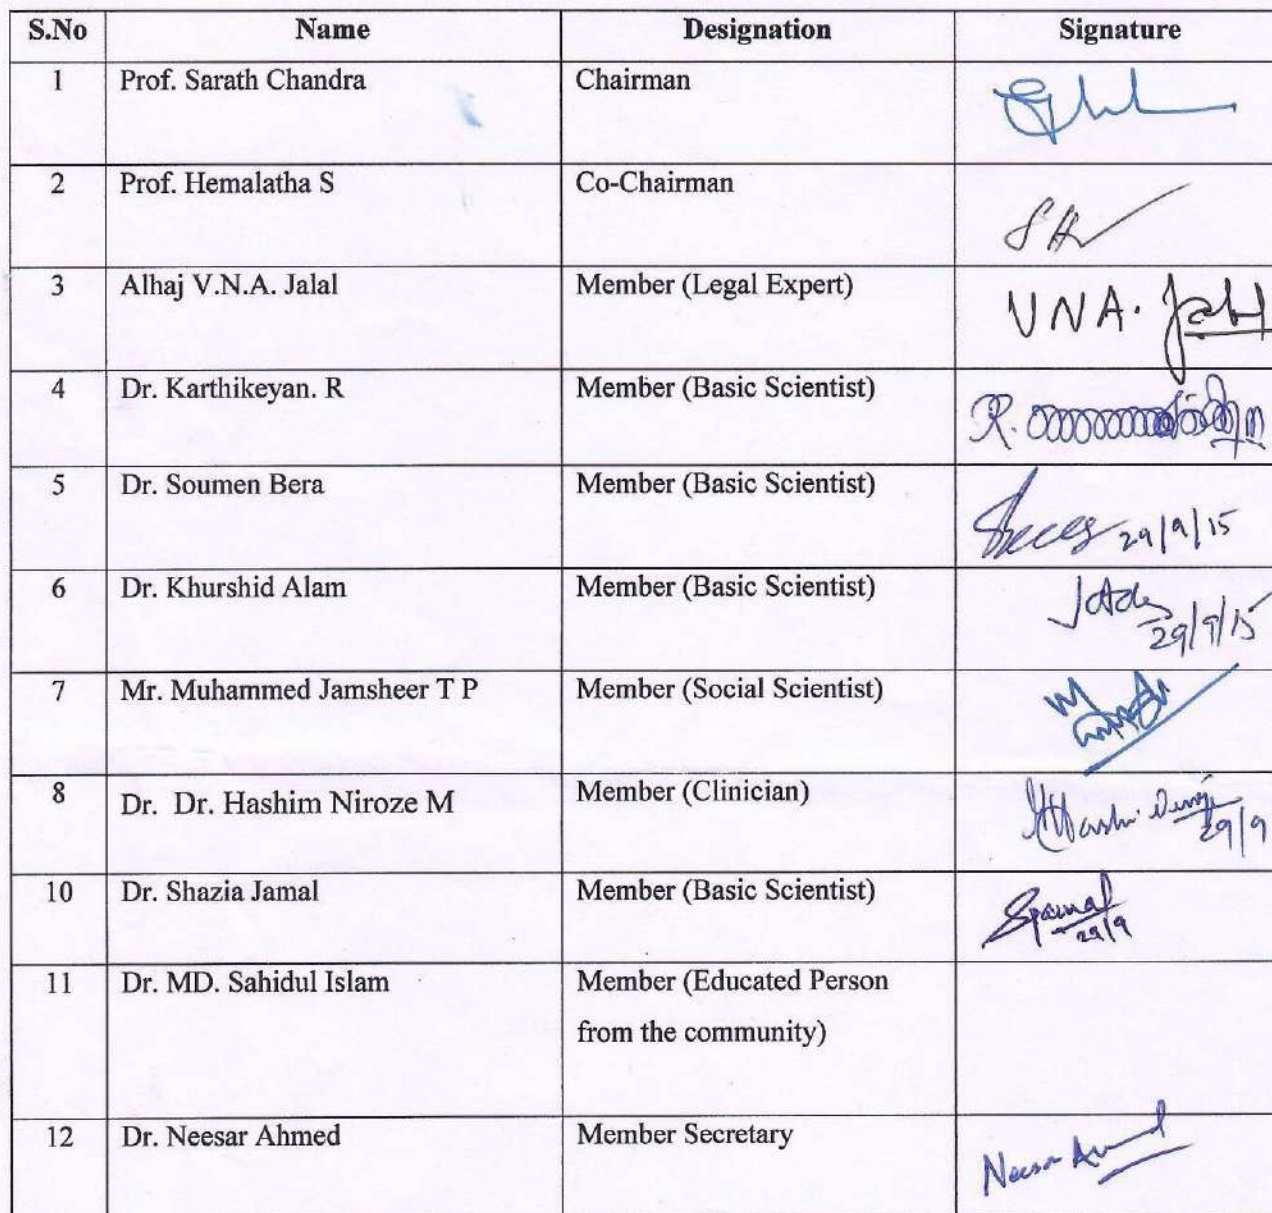 S.No Name Designation Signature
1 Prof. Sarath Chandra Chairman
2 Prof. Hemalatha S Co-Chairman
3 Alhaj V.N.A. Jalal Member (Legal Expert) V N A. Jalal
4 Dr. Karthikeyan. R Member (Basic Scientist) R.
5 Dr. Soumen Bera Member (Basic Scientist) 29/9/15
6 Dr. Khurshid Alam Member (Basic Scientist) 29/9/15
7 Mr. Muhammed Jamsheer T P Member (Social Scientist)
8 Dr. Dr. Hashim Niroze M Member (Clinician) 29/9
10 Dr. Shazia Jamal Member (Basic Scientist) SJamal 29/9
11 Dr. MD. Sahidul Islam Member (Educated Person
from the community)
12 Dr. Neesar Ahmed Member Secretary